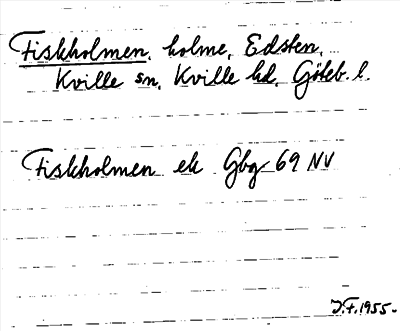 Fiskholmen, holme, Edsten,
Kville sn, Kville hd, Göteb. l.
Fiskholmen ek Gbg 69 NV
J.F. 1955.